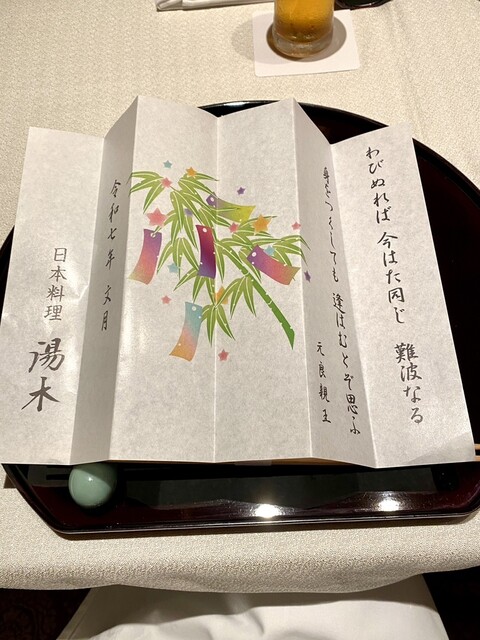 わびぬれば 今はた同じ 難波なる
身をつくしても 逢はむとぞ思ふ
元良親王
令和七年 文月
日本料理 湯木